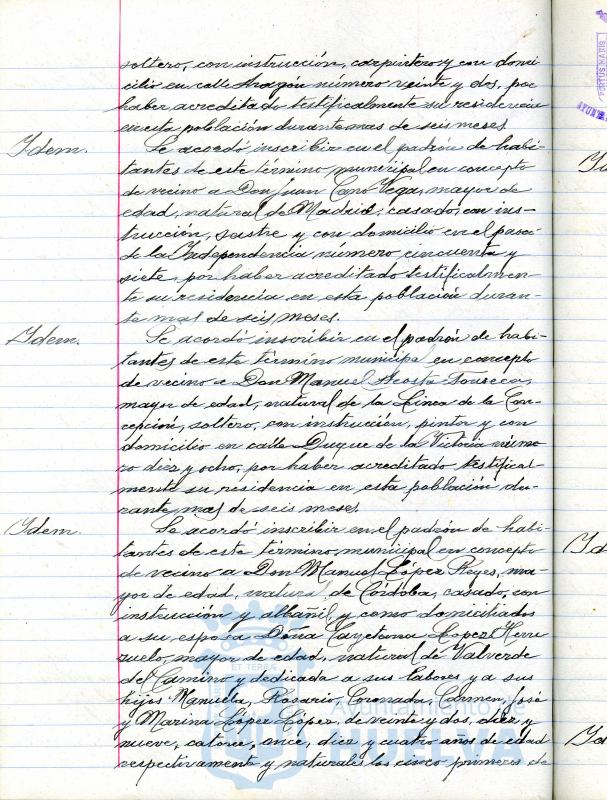 soltero, con instrucción, carpintero y con domi-
cilio en calle Aragón número veinte y dos, por
haber acreditado testificalmente su residencia
en esta población durante mas de seis meses.
Idem. Se acordó inscribir en el padrón de habi-
tantes de este término municipal en concepto
de vecino a Don Juan Cano Vega, mayor de
edad, natural de Madrid, casado, con ins-
trucción, sastre y con domicilio en el paseo
de la Independencia número cincuenta y
siete, por haber acreditado testificalmen-
te su residencia en esta población duran-
te mas de seis meses.
Idem. Se acordó inscribir en el padrón de habi-
tantes de este término municipal en concepto
de vecino a Don Manuel Acosta Fonseca,
mayor de edad, natural de la Linea de la Con-
cepción, soltero, con instrucción, pintor y con
domicilio en calle Duque de la Victoria núme-
ro diez y ocho, por haber acreditado testifical-
mente su residencia en esta población du-
rante mas de seis meses.
Idem. Se acordó inscribir en el padrón de habi-
tantes de este término municipal en concepto
de vecino a Don Manuel López Reyes, ma-
yor de edad, natural de Córdoba, casado, con
instrucción y albañil, y como domiciliados
a su esposa Doña Cayetana López Herru-
zuelo, mayor de edad, natural de Valverde
del Camino y dedicada a sus labores y a sus
hijos Manuela, Rosario, Coronada, Carmen, José
y Marina López López, de veinte y dos, diez y
nueve, catorce, once, diez y cuatro años de edad
respectivamente y naturales los cinco primeros de
Ayuntamiento de
HUELVA